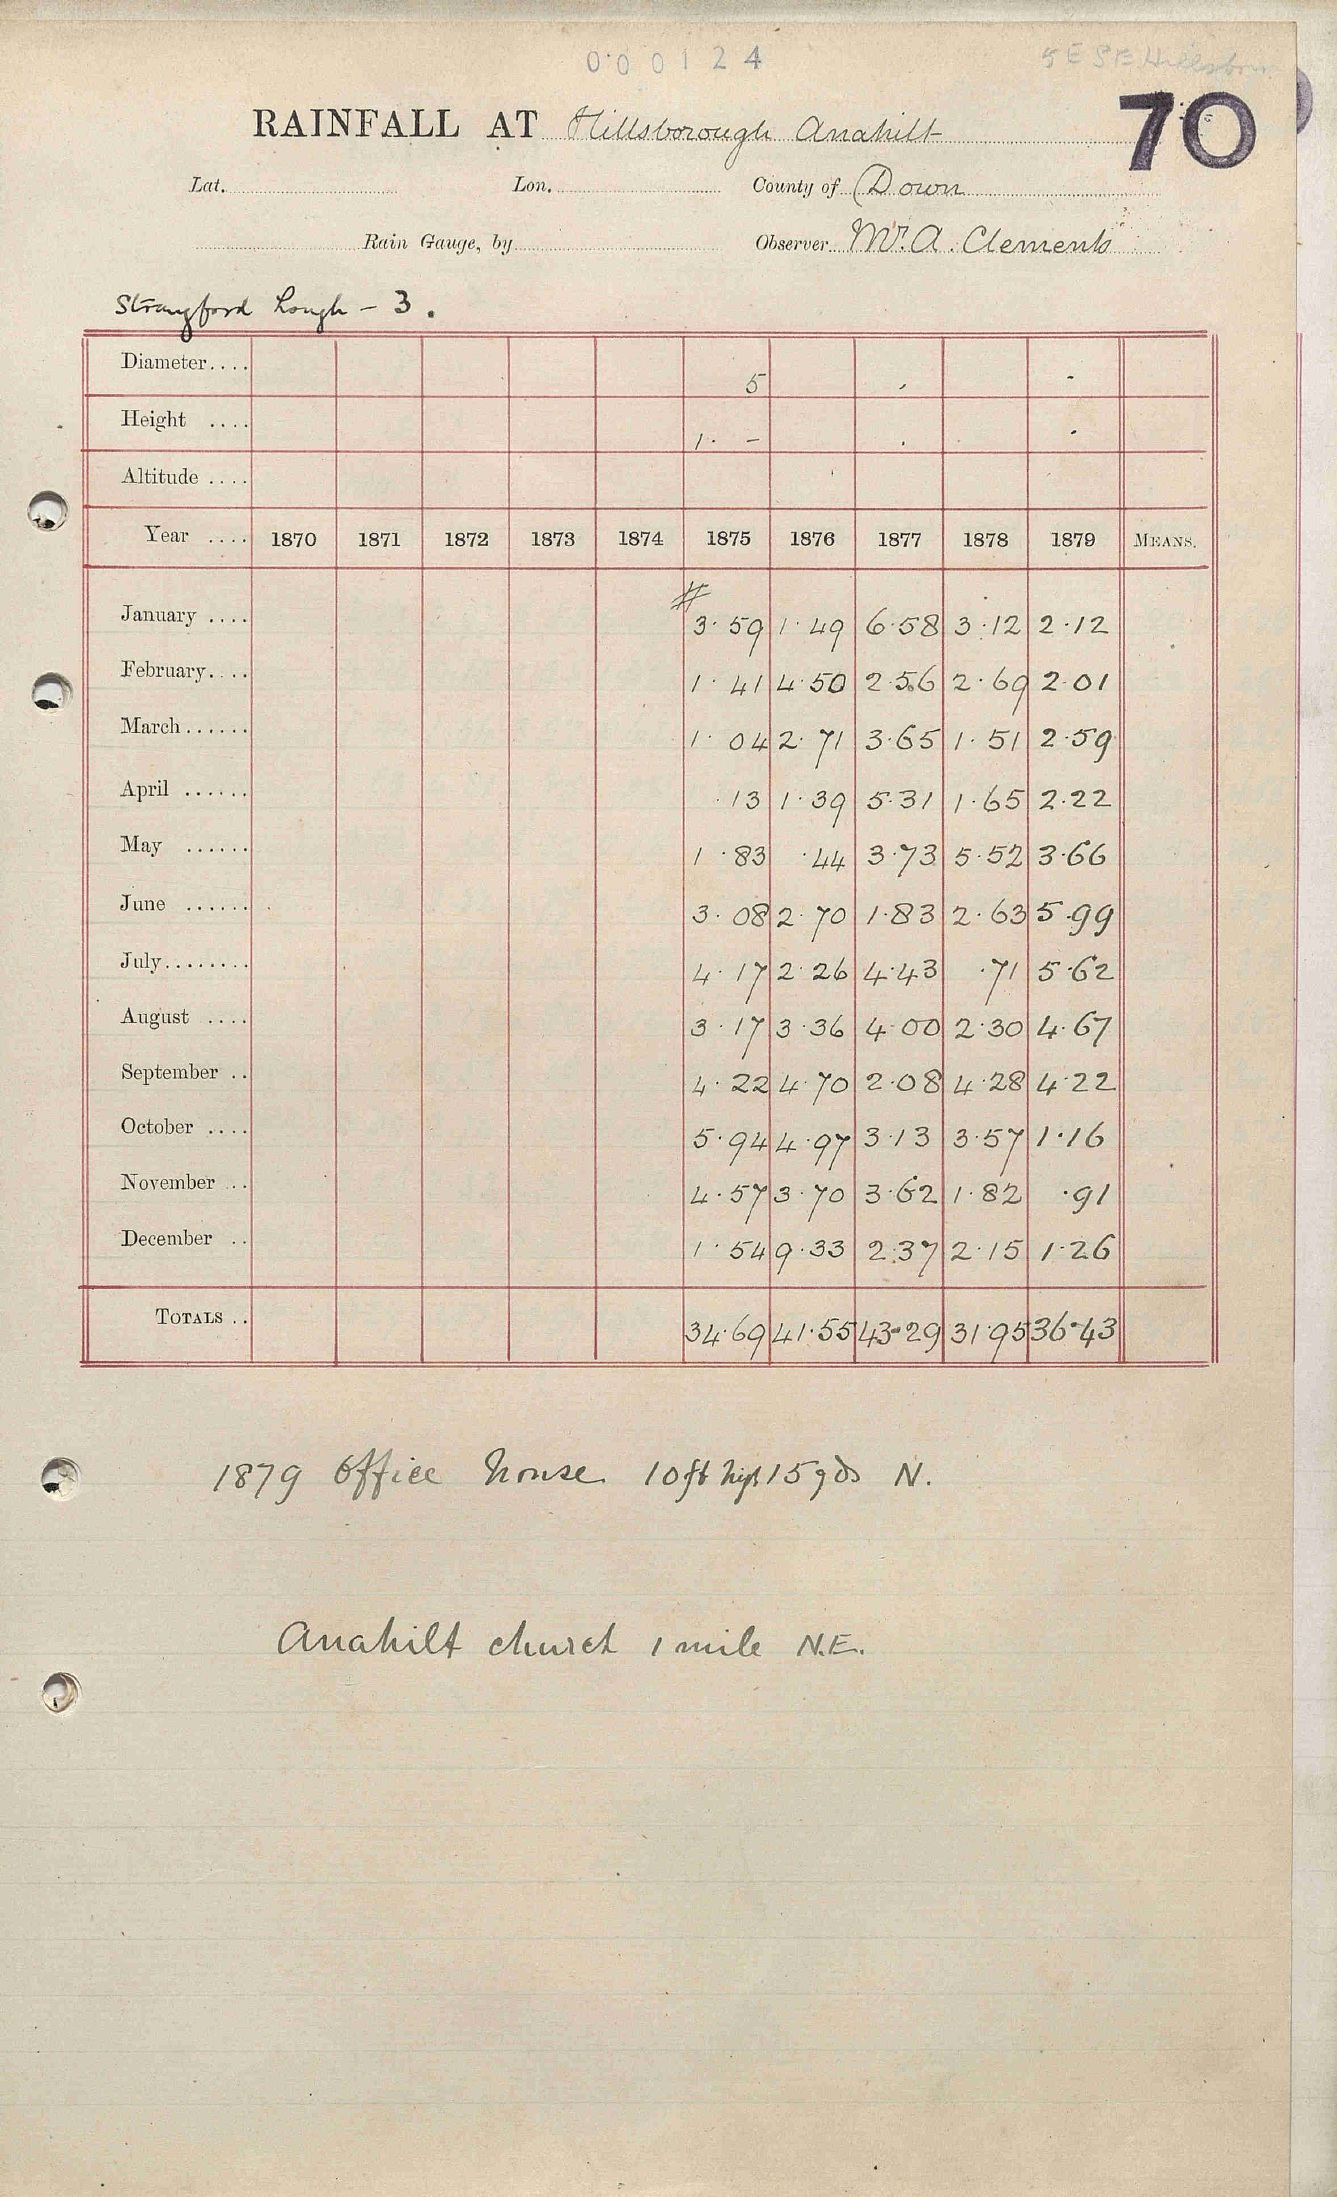 000124
5 E S E Hillsboro
70
RAINFALL AT Hillsborough Anahilt
Lat. Lon. County of Down
Rain Gauge, by Observer Mr. A. Clements
Strangford Lough - 3.
Diameter.... 5 , -
Height .... 1. - . .
Altitude ....
Year .... 1870 1871 1872 1873 1874 1875 1876 1877 1878 1879 MEANS.
#
January .... 3.59 1.49 6.58 3.12 2.12
February.... 1.41 4.50 2.56 2.69 2.01
March...... 1.04 2.71 3.65 1.51 2.59
April ...... .13 1.39 5.31 1.65 2.22
May ...... 1.83 .44 3.73 5.52 3.66
June ...... 3.08 2.70 1.83 2.63 5.99
July........ 4.17 2.26 4.43 .71 5.62
August .... 3.17 3.36 4.00 2.30 4.67
September .. 4.22 4.70 2.08 4.28 4.22
October .... 5.94 4.97 3.13 3.57 1.16
November .. 4.57 3.70 3.62 1.82 .91
December .. 1.54 9.33 2.37 2.15 1.26
TOTALS .. 34.69 41.55 43.29 31.95 36.43
1879 Office house 10ft high 15 yds N.
Anahilt church 1 mile N.E.